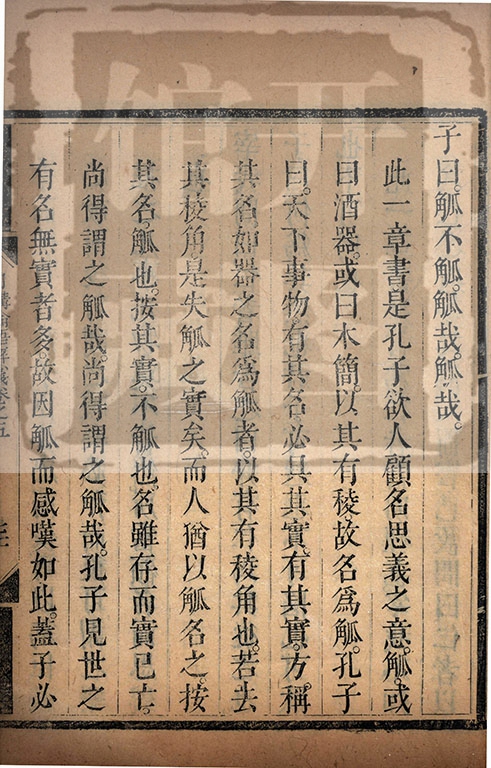 子曰。觚不觚。觚哉。觚哉。
此一章書是孔子欲人顧名思義之意。觚。或
曰酒器。或曰木簡。以其有稜故名為觚。孔子
曰。天下事物有其名。必具其實。有其實。方稱
其名。如器之名為觚者。以其有稜角也。若去
其稜角。是失觚之實矣。而人猶以觚名之。按
其名。觚也。按其實。不觚也。名雖存而實已亡。
尚得謂之觚哉。尚得謂之觚哉。孔子見世之
有名無實者多。故因觚而感嘆如此。蓋子必